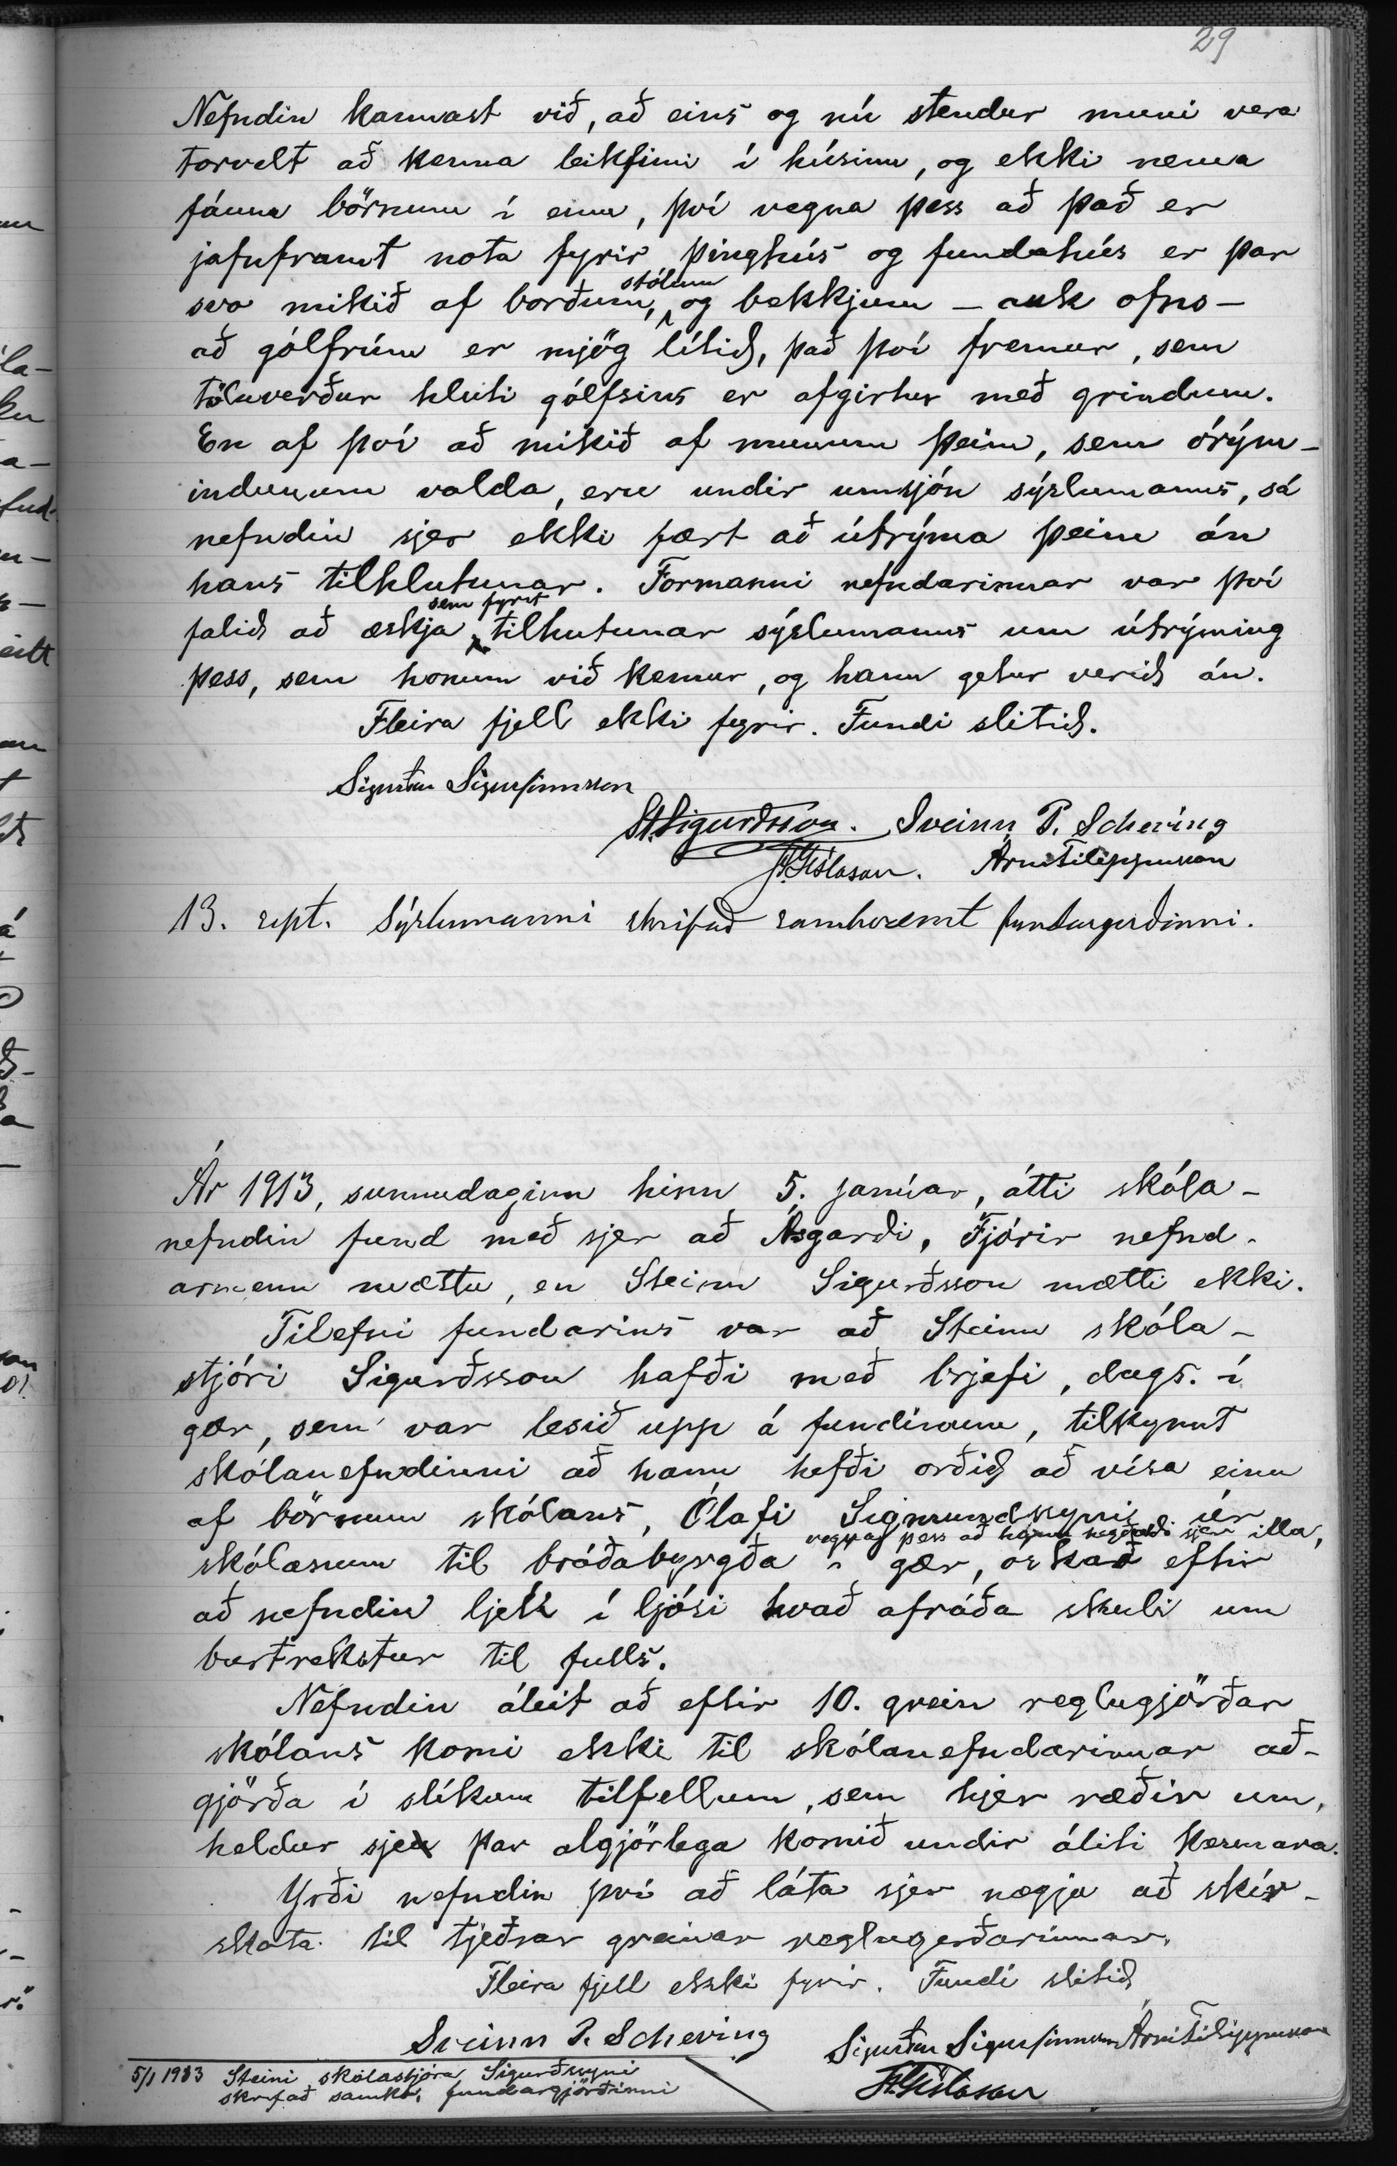 29
Nefndin kannast við, að eins og nú stendur muni vera
torvelt að kenna leikfimi í húsinu, og ekki nema
fáum börnum í einu, því vegna þess að það er
jafnframt nota fyrir þinghús og fundahús er þar
svo mikið af borðum, stólum og bekkjum – auk ofns –
að gólfrúm er mjög lítið, það því fremur, sem
töluverður hluti gólfsins er afgirtur með grindum.
En af því að mikið af munum þeim, sem órým-
indunum valda, eru undir umsjón sýslumanns, sá
nefndin sjer ekki fært að útrýma þeim án
hans tilhlutunar. Formanni nefndarinnar var því
falið að æskja sem fyrst tilhutunar sýslumanns um útrýming
þess, sem honum við kemur, og hann getur verið án.
Fleira fjell ekki fyrir. Fundi slitið.
Sigurður Sigurfinnsson
St. Sigurðsson. Sveinn P. Scheving
J. Gíslason. Árni Filippusson
13. sept. Sýslumanni skrifað samkvæmt fundargerðinni.
Ár 1913, sunnudaginn hinn 5. janúar, átti skóla-
nefndin fund með sjer að Ásgarði, Fjórir nefnd-
armenn mættu, en Steinn Sigurðsson mætti ekki.
Tilefni fundarins var að Steinn skóla-
stjóri Sigurðsson hafði með brjefi, dags. í
gær, sem var lesið upp á fundinum, tilkynnt
skólanefndinni að hann hefði orðið að vísa einu
af börnum skólans, Ólafi Sigmundssyni úr
skólanum til bráðabyrgða vegna þess að hann hegðaði sjer illa, í gær, oskað eftir
að nefndin ljeti í ljósi hvað afráða skuli um
burtrekstur til fulls.
Nefndin áleit að eftir 10. grein reglugjörðar
skólans komi ekki til skólanefndarinnar að-
gjörða í slíkum tilfellum, sem hjer ræðir um,
heldur sje þar algjörlega komið undir áliti kennara.
Yrði nefndin því að láta sjer nægja að skír-
skota til tjeðrar greinar reglugerðarinnar.
Fleira fjell ekki fyrir. Fundi slitið
Sveinn P. Scheving Sigurður Sigurfinnsson Árni Filippusson
J. Gíslason
5/1 1913 Steini skólastjóra Sigurðssyni
skrifað samkv. fundargjörðinni